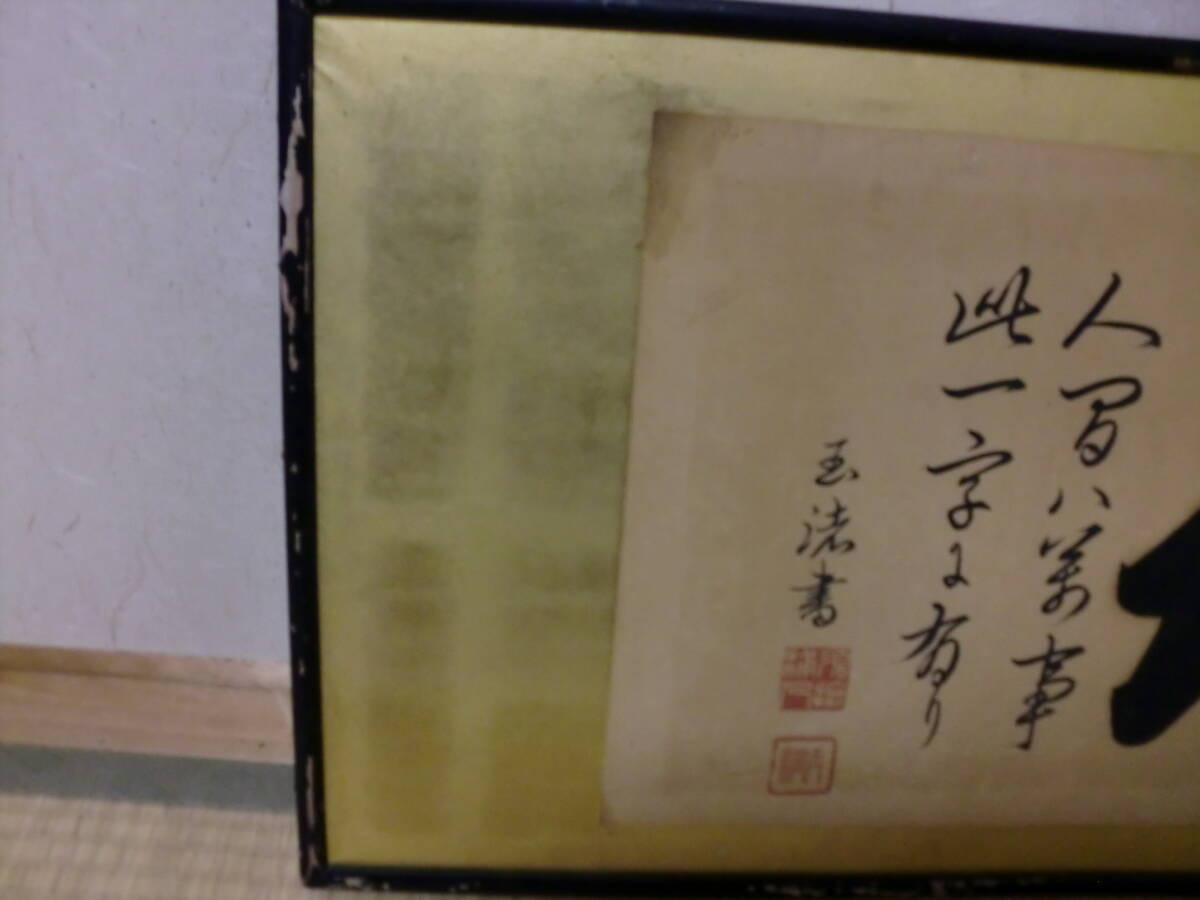 人間ハ萬事
此一字に有り
玉渚書